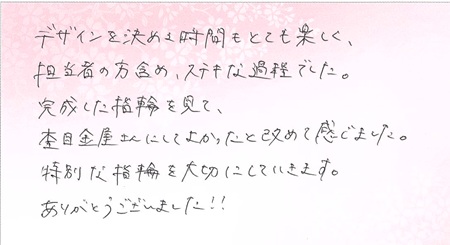 デザインを決める時間もとても楽しく、
担当者の方含め、ステキな過程でした。
完成した指輪を見て、
杢目金屋さんにしてよかったと改めて感じました。
特別な指輪を大切にしていきます。
ありがとうございました!!